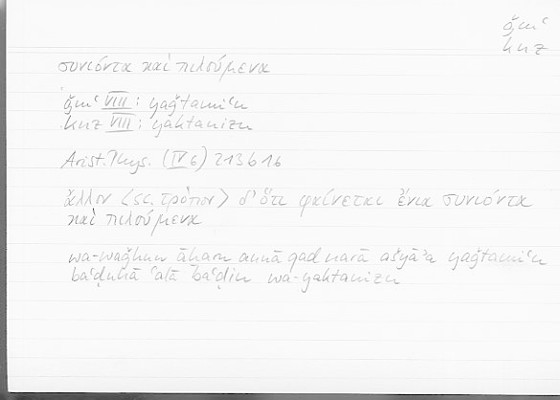 ǧmʿ
knz
συνιόντα καὶ πιλούμενα
ǧmʿ VIII: yaǧtamiʿu
knz VIII: yaktanizu
Arist. Phys. (IV 6) 213b16
ἄλλον <sc. τρόπον> δ’ ὅτι φαίνεται ἔνια συνιόντα
καὶ πιλούμενα
wa-waǧhun āḫaru annā qad narā ašyāʾa yaǧtamiʿu
baʿḍuhā ʿalā baʿḍin wa-yaktanizu